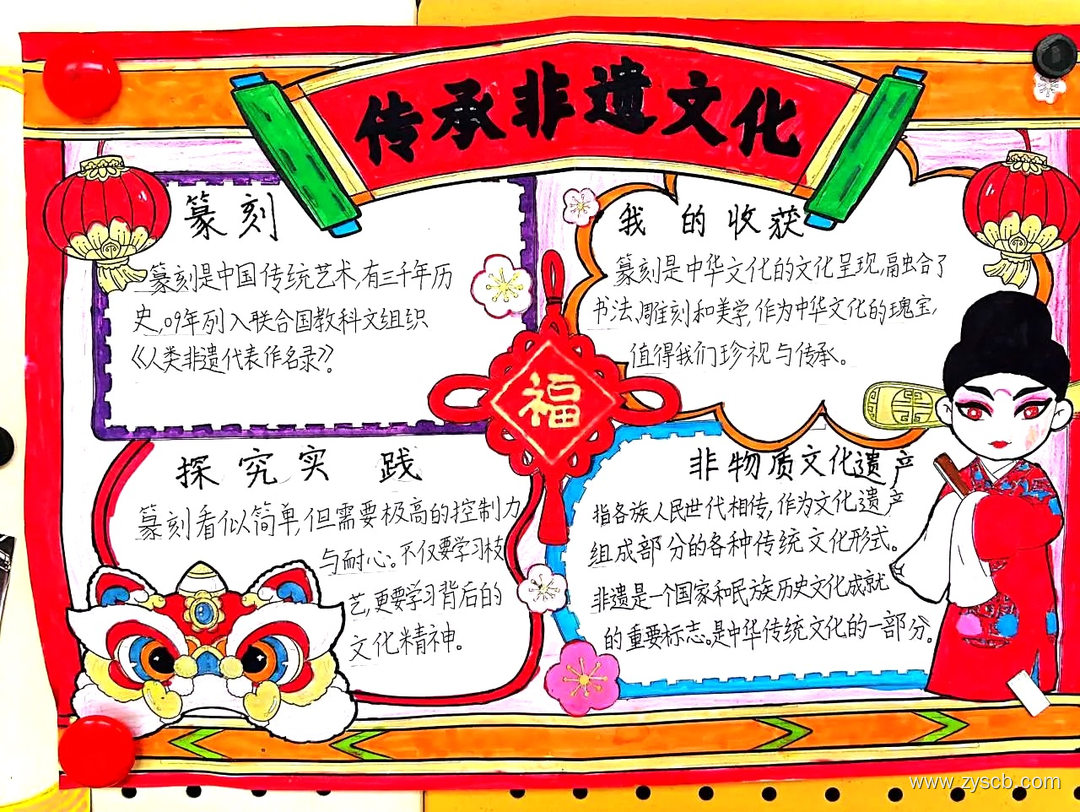 传承非遗文化
篆刻
篆刻是中国传统艺术,有三千年历
史,09年列入联合国教科文组织
《人类非遗代表作名录》。
我的收获
篆刻是中华文化的文化呈现,融合了
书法、雕刻和美学,作为中华文化的瑰宝,
值得我们珍视与传承。
福
探究实践
篆刻看似简单,但需要极高的控制力
与耐心。不仅要学习技
艺,更要学习背后的
文化精神。
非物质文化遗产
指各族人民世代相传,作为文化遗产
组成部分的各种传统文化形式。
非遗是一个国家和民族历史文化成就
的重要标志。是中华传统文化的一部分。
www.zyscb.com